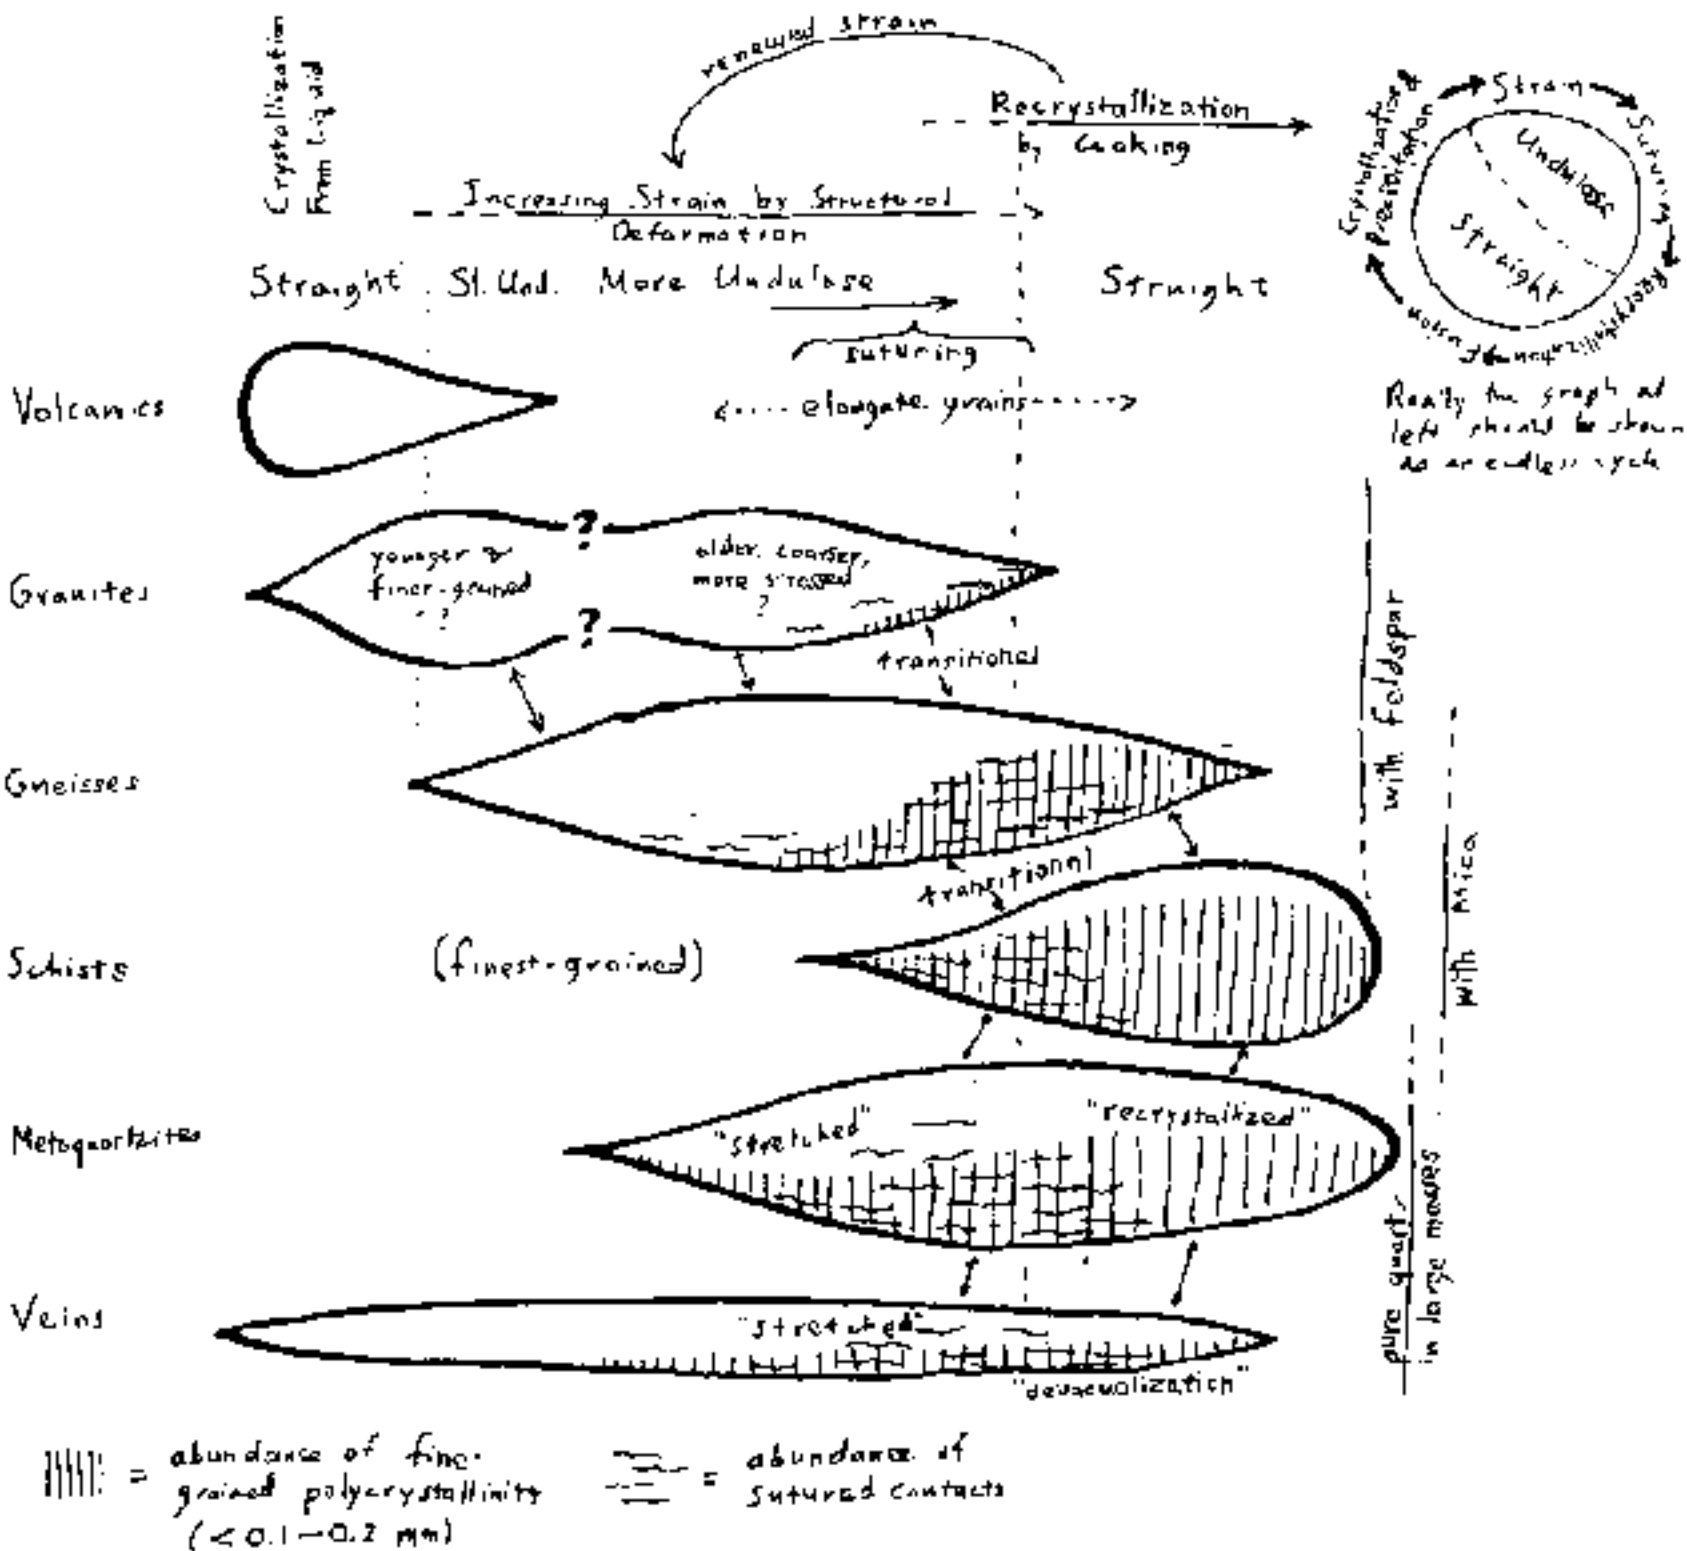 Crystallization
From Liquid
renewed strain
Recrystallization
by Cooking
Increasing Strain by Structural
Deformation
Straight Sl. Und. More Undulose
Straight
suturing
elongate grains
Crystallization &
precipitation
Strain
Suturing
Recrystallization
Fusion
Undulose
Straight
Really the graph at
left should be shown
as an endless cycle
Volcanics
Granites
younger &
finer-grained
?
?
?
older, coarser,
more stressed
?
transitional
Gneisses
transitional
Schists
(finest-grained)
Metaquartzites
"stretched"
"recrystallized"
Veins
"stretched"
with feldspar
with mica
pure quartz
in large masses
= abundance of fine-
grained polycrystallinity
(<0.1–0.2 mm)
= abundance of
sutured contacts